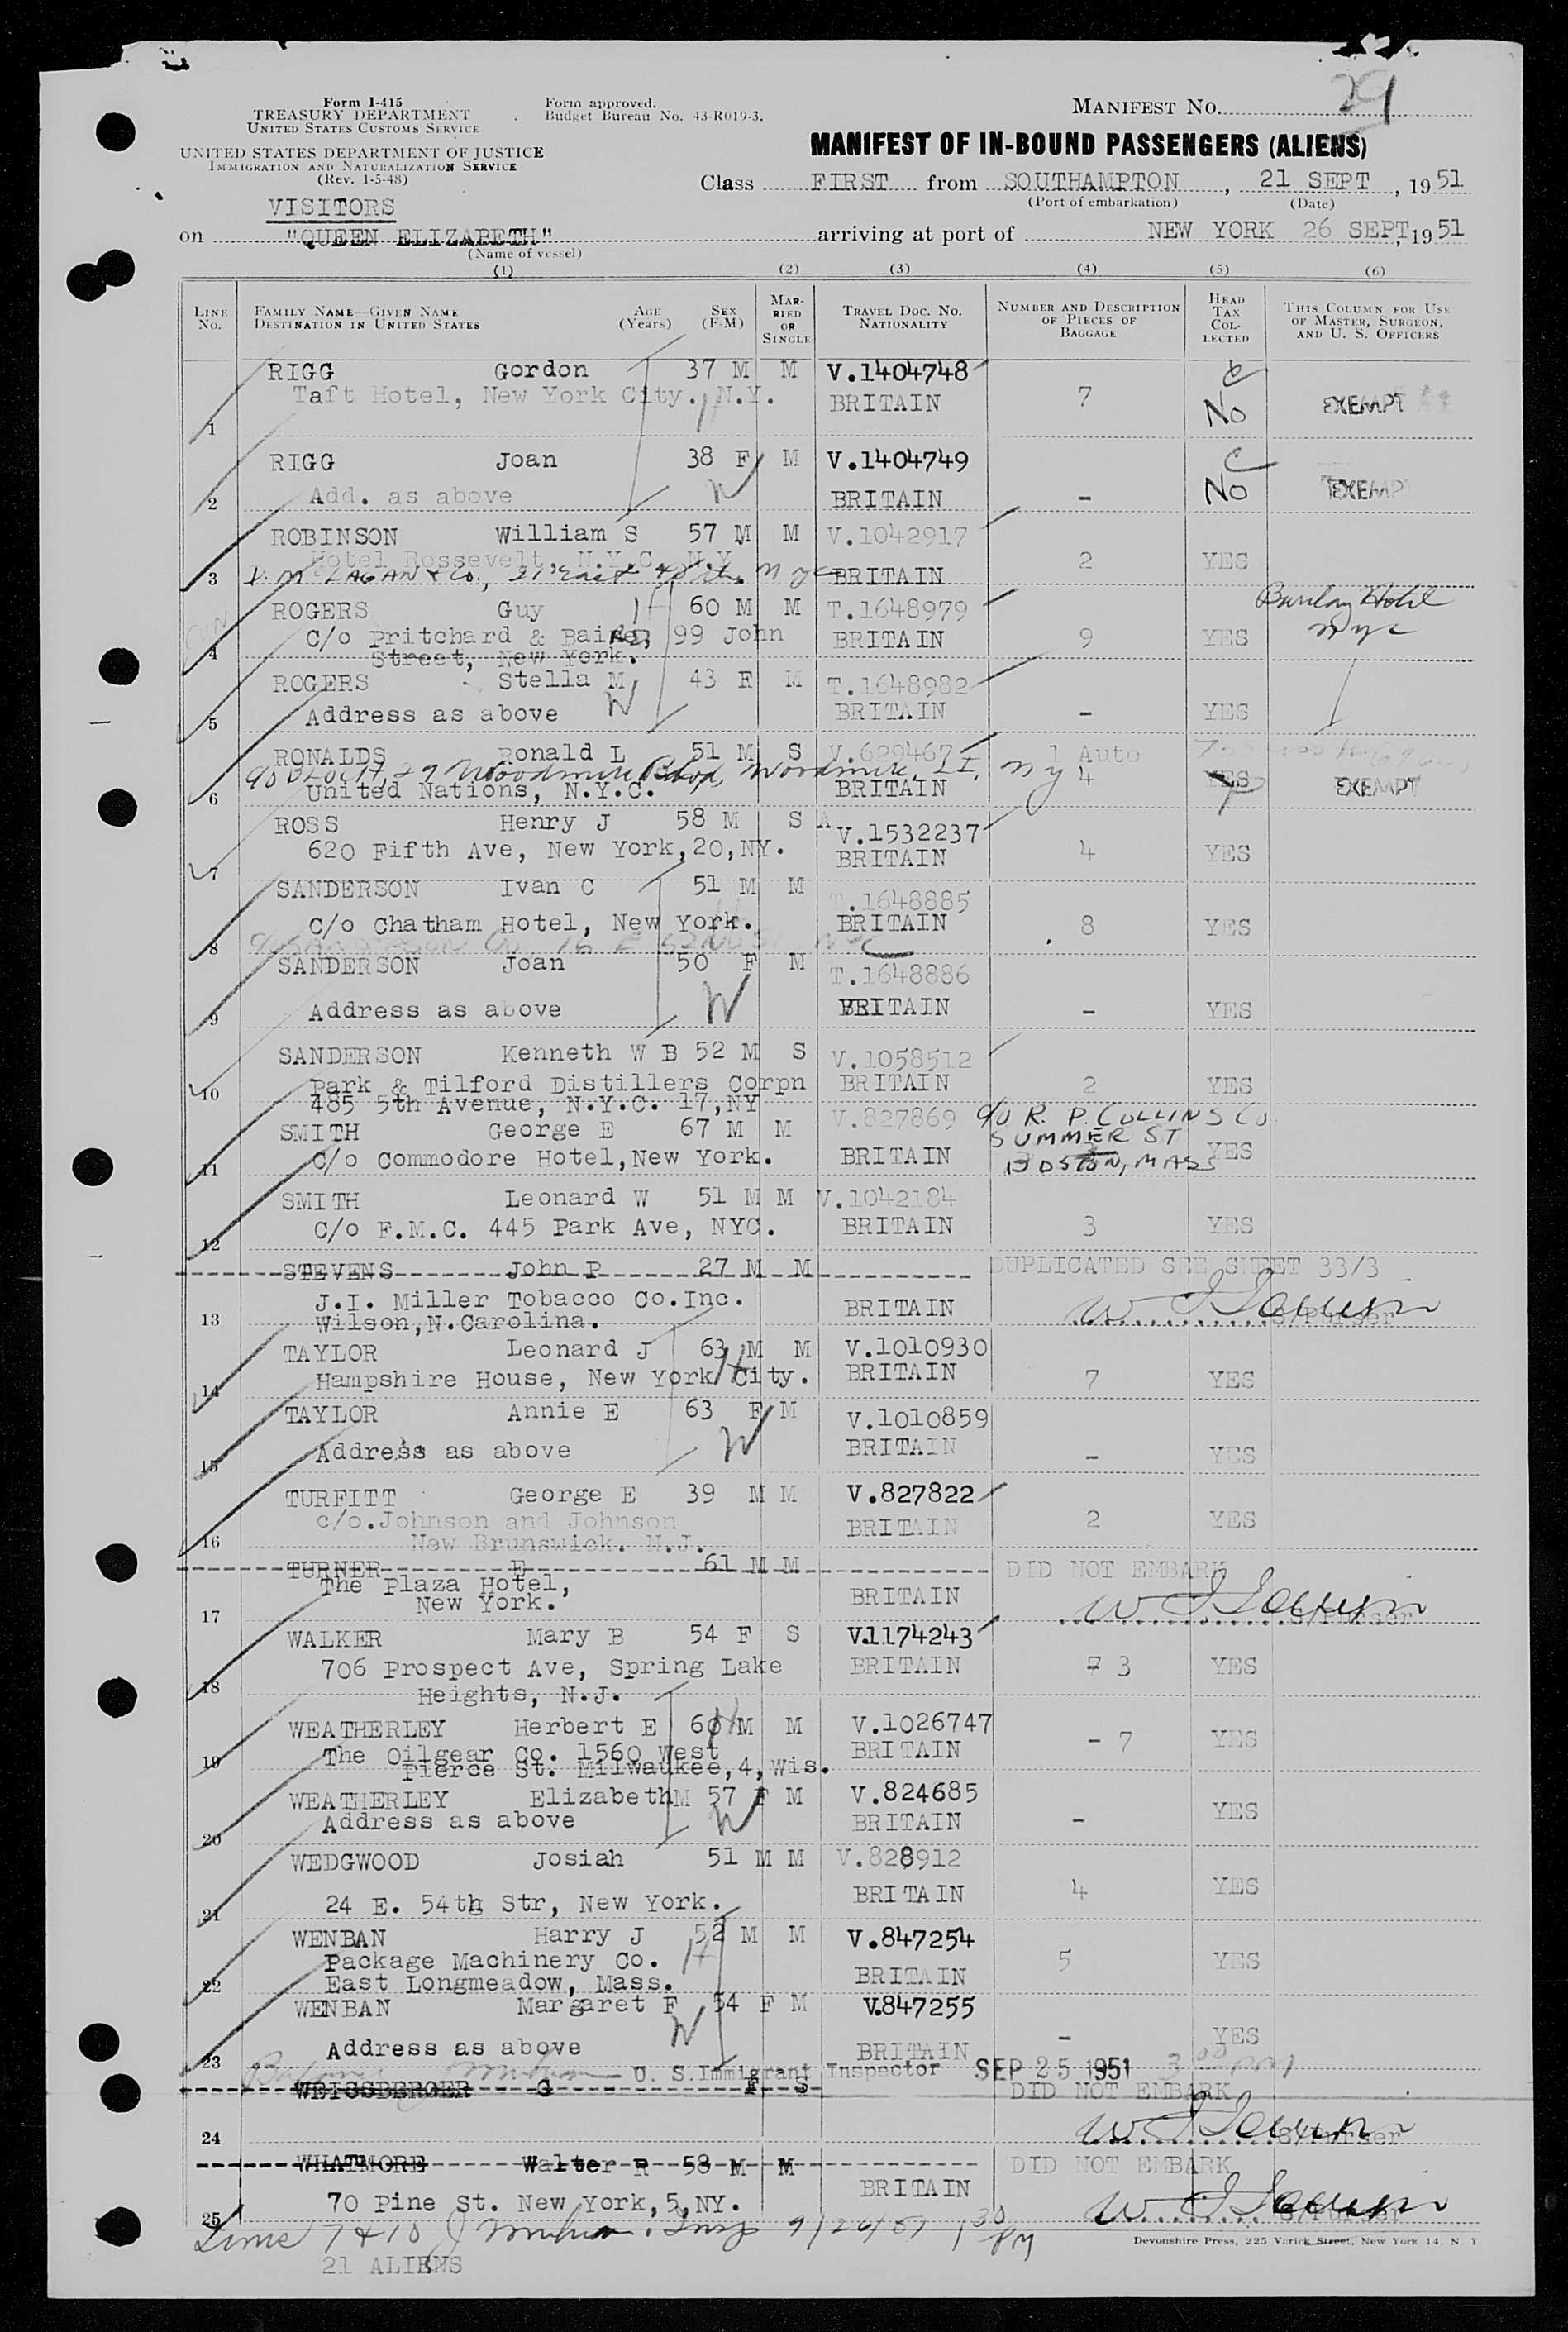 29
Form I-415
TREASURY DEPARTMENT
UNITED STATES CUSTOMS SERVICE
Form approved.
Budget Bureau No. 43-R019-3.
MANIFEST NO.
UNITED STATES DEPARTMENT OF JUSTICE
IMMIGRATION AND NATURALIZATION SERVICE
(Rev. 1-5-48)
MANIFEST OF IN-BOUND PASSENGERS (ALIENS)
Class FIRST from SOUTHAMPTON, 21 SEPT, 1951
(Port of embarkation) (Date)
VISITORS
on "QUEEN ELIZABETH" arriving at port of NEW YORK 26 SEPT, 1951
(Name of vessel)
(1) (2) (3) (4) (5) (6)
LINE No. FAMILY NAME—GIVEN NAME DESTINATION IN UNITED STATES AGE (Years) SEX (F-M) MARRIED OR SINGLE TRAVEL DOC. NO. NATIONALITY NUMBER AND DESCRIPTION OF PIECES OF BAGGAGE HEAD TAX COLLECTED THIS COLUMN FOR USE OF MASTER, SURGEON, AND U. S. OFFICERS
RIGG Gordon 37 M M V.1404748
Taft Hotel, New York City. N.Y. BRITAIN 7 No EXEMPT
1 H
RIGG Joan 38 F M V.1404749
2 Add. as above W BRITAIN - No EXEMPT
ROBINSON William S 57 M M V.1042917
Hotel Rossevelt, N.Y.C. N.Y. 2 YES
3 LAGAN & Co., 21 East 40th. NYC BRITAIN
ROGERS Guy H 60 M M T.1648979 Barclay Hotel
4 C/o Pritchard & Baird, 99 John BRITAIN 9 YES NYC
Street, New York.
ROGERS Stella M 43 F M T.1648982
5 Address as above W BRITAIN - YES
RONALDS Ronald L 51 M S V.629467 1 Auto
29 Woodmere Blvd, Woodmere, L I, NY 4 YES
6 United Nations, N.Y.C. BRITAIN EXEMPT
ROSS Henry J 58 M S V.1532237
7 620 Fifth Ave, New York,20,NY. BRITAIN 4 YES
SANDERSON Ivan C 51 M M T.1648885
C/o Chatham Hotel, New York. BRITAIN 8 YES
8
SANDERSON Joan 50 F M T.1648886
9 Address as above W BRITAIN - YES
SANDERSON Kenneth W B 52 M S V.1058512
10 Park & Tilford Distillers Corpn BRITAIN 2 YES
485 5th Avenue, N.Y.C. 17,NY
SMITH George E 67 M M V.827869 c/o R. P. COLLINS CO
11 C/o Commodore Hotel,New York. BRITAIN SUMMER ST YES
BOSTON, MASS
SMITH Leonard W 51 M M V.1042184
12 C/o F.M.C. 445 Park Ave, NYC. BRITAIN 3 YES
STEVENS John P 27 M M DUPLICATED SEE SHEET 33/3
J.I. Miller Tobacco Co.Inc. BRITAIN
13 Wilson,N.Carolina. S/Purser
TAYLOR Leonard J 63 M M V.1010930
14 Hampshire House, New York City. H BRITAIN 7 YES
TAYLOR Annie E 63 F M V.1010859
15 Address as above W BRITAIN - YES
TURFITT George E 39 M M V.827822
c/o.Johnson and Johnson BRITAIN 2 YES
16 New Brunswick. N.J.
TURNER E 61 M M DID NOT EMBARK
The Plaza Hotel, BRITAIN
17 New York. S/Purser
WALKER Mary B 54 F S V.1174243
706 Prospect Ave, Spring Lake BRITAIN 3 YES
18 Heights, N.J.
WEATHERLEY Herbert E 60 M M V.1026747
19 The Oilgear Co. 1560 West BRITAIN - 7 YES
Pierce St. Milwaukee,4,Wis.
WEATHERLEY Elizabeth M 57 F M V.824685
20 Address as above W BRITAIN - YES
WEDGWOOD Josiah 51 M M V.828912
21 24 E. 54th Str, New York. BRITAIN 4 YES
WENBAN Harry J 52 M M V.847254
Package Machinery Co. H BRITAIN 5 YES
22 East Longmeadow, Mass.
WENBAN Margaret F 54 F M V.847255
23 Address as above W BRITAIN - YES
U. S. Immigrant Inspector SEP 25 1951 3 PM
WEISSBERGER G F S DID NOT EMBARK
24 S/Purser
WHATMORE Walter R 58 M M DID NOT EMBARK
25 70 Pine St. New York,5,NY. BRITAIN S/Purser
Lines 7 & 10 Insp 9/26/51 1 30 PM
Devonshire Press, 225 Varick Street, New York 14, N. Y.
21 ALIENS